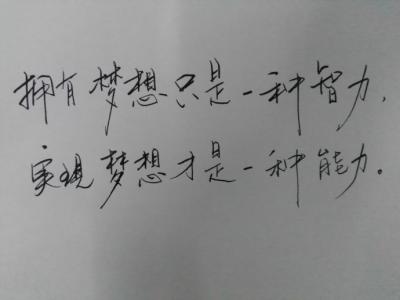 拥有梦想只是一种智力，
实现梦想才是一种能力。